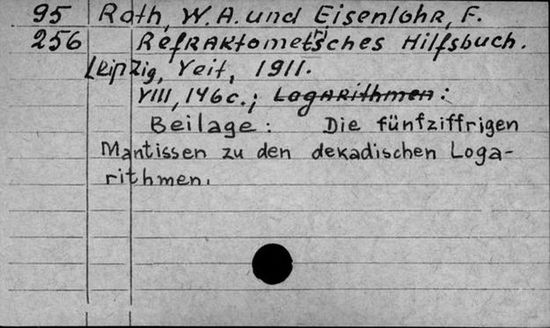 95 Roth, W. A. und Eisenlohr, F.
256 Refraktometrisches Hilfsbuch.
Leipzig, Veit, 1911.
VIII, 146 c.; Logarithmen:
Beilage: Die fünfziffrigen
Mantissen zu den dekadischen Loga-
rithmen.